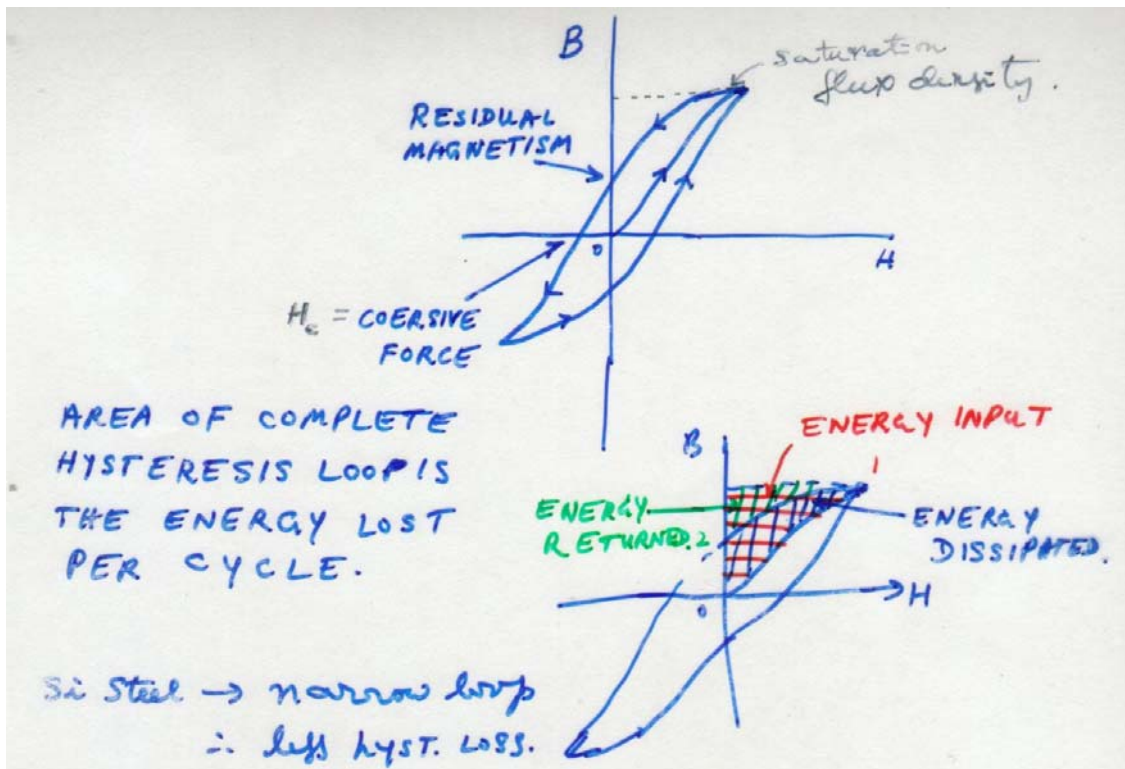 B
saturation
flux density.
RESIDUAL
MAGNETISM
O
H
Hc = COERSIVE
FORCE
AREA OF COMPLETE
HYSTERESIS LOOP IS
THE ENERGY LOST
PER CYCLE.
B
ENERGY INPUT
1
ENERGY
RETURNED.
2
ENERGY
DISSIPATED.
O
H
Si Steel → narrow loop
∴ less HYST. LOSS.